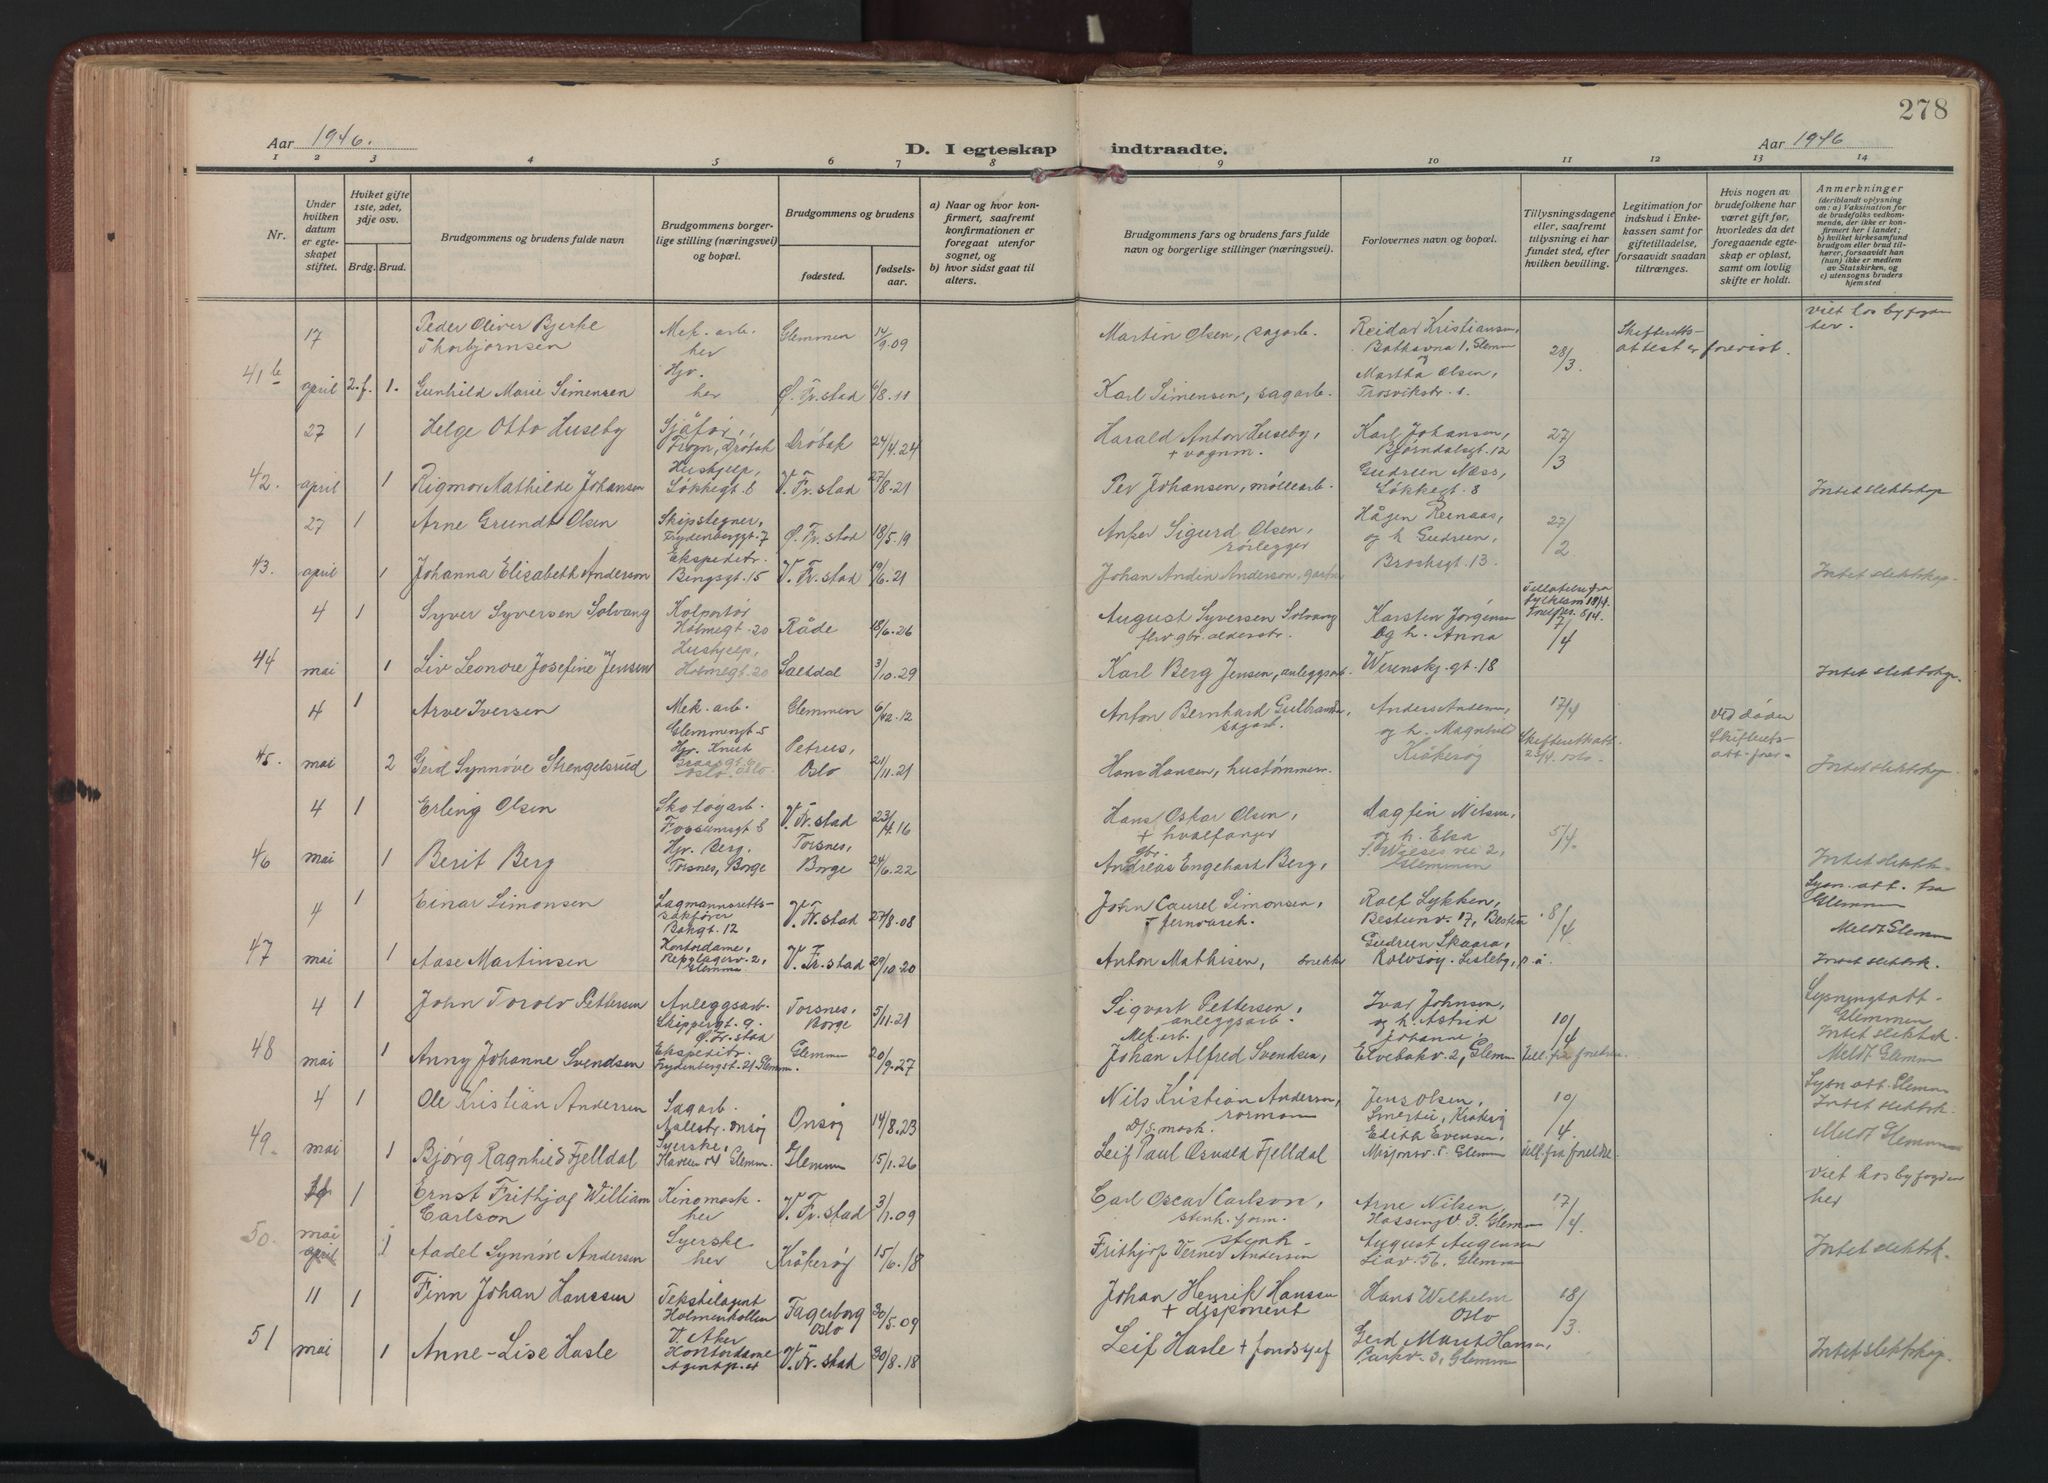 278
Aar 1946.
D. I egteskap indtraadte.
Aar 1946
1 2 3 4 5 6 7 8 9 10 11 12 13 14
Nr.
Under hvilken datum er egteskapet stiftet.
Hviket gifte 1ste, 2det, 3dje osv.
Brdg. Brud.
Brudgommens og brudens fulde navn
Brudgommens borgerlige stilling (næringsvei) og bopæl.
Brudgommens og brudens
fødested.
fødselsaar.
a) Naar og hvor konfirmert, saafremt konfirmationen er foregaat utenfor sognet, og
b) hvor sidst gaat til alters.
Brudgommens fars og brudens fars fulde navn og borgerlige stillinger (næringsvei).
Forlovernes navn og bopæl.
Tillysningsdagene eller, saafremt tillysning ei har fundet sted, efter hvilken bevilling.
Legitimation for indskud i Enkekassen samt for giftetilladelse, forsaavidt saadan tiltrænges.
Hvis nogen av brudefolkene har været gift før, hvorledes da det foregaaende egteskap er opløst, samt om lovlig skifte er holdt.
Anmerkninger (deriblandt oplysning om: a) Vaksination for de brudefolks vedkommende, der ikke er konfirmert her i landet; b) hvilket kirkesamfund brudgom eller brud tilhører, forsaavidt han (hun) ikke er medlem av Statskirken, og c) utensogns bruders hjemsted
41b 17 april 2.f. 1.
Peder Oliver Bjerke Thorbjørnsen
Mek. arb. her
Glemmen 14/9.09
Martin Olsen, sagarb.
Reidar Kristiansen, Bathavna 1, Glemm og
28/3
Skifteretts-attest er forevist.
viet hos byfogden her.
Gunhild Marie Simensen
Hjv. her
Ø. Fr.stad 6/8.11
Karl Simensen, sagarb.
Martha Olsen, Trosvikstr. 1.
42. 27 april 1 1
Helge Otto Huseby
Sjåfør, Frogn, Drøbak
Drøbak 24/4.24
Harald Anton Huseby, + vognm.
Karl Johansen, Bjørndalsgt. 12
27/3
Rigmor Mathilde Johansen
Hushjelp, Løkkegt. 8
V. Fr.stad 27/8.21
Per Johansen, møllearb.
Gudrun Næss, Løkkegt. 8
Intet slektskap
43. 27 april 1 1
Arne Grundt Olsen
Skipstegner, Frydenberggt. 7
Ø. Fr.stad 18/5.19
Anker Sigurd Olsen, rørlegger
Hågen Reinaas, og h. Gudrun,
27/2
Johanna Elisabeth Anderson
Ekspeditr. Bingsgt. 15
V. Fr.stad 19/6.21
Johan Andin Anderson, gartn
Brochsgt. 13.
Intet slektskap.
44 4 mai 1 1
Syver Syversen Solvang
Kolportør Holmegt. 20
Råde 18/6.26
August Syversen Solvang fhv. gbr. alderstr.
Karsten Jørgensen Og h. Anna
Tillatelse fra fylkesm 18/4.
7/4
Liv Leonore Josefine Jensen
Hushjelp, Holmegt. 20
Saltdal 3/10.29
Karl Berg Jensen, anleggsarb.
Werenskj. gt. 18
Intet slektskap.
45. 4 mai 1 2
Arve Iversen
Mek. arb. Glemmengt. 5
Glemmen 6/12.12
Anton Bernhard Gulbrandsen, sagarb.
Anders Andersen og h. Magnhild Kråkerøy
17/4
Skifterettsatt. 23/4. Oslo.
ved døden Skifterets-att. forev.
Gerd Synnøve Strengelsrud
Hjv. Knut Oslo
Petrus, Oslo 21/11.21
Hans Hansen, hustømmerm.
Intet slektskap.
46 4 mai 1 1
Erling Olsen
Skotøyarb. Fossumsgt 8
V. Fr.stad 23/4.16
Hans Oskar Olsen, + hvalfanger
Dagfin Nilsen, og h. Elsa
5/4.
Berit Berg
Hjv. Berg, Torsnes, Borge
Torsnes, Borge 24/6.22
gbr. Andreas Engehart Berg,
vei 2, Glemmen
Intet slektsk.
47 4 mai 1 1
Einar Simonsen
Lagmannsretts-sakfører Bakgt. 12
V. Fr.stad 27/8.08
John Laurel Simonsen, + jernvareh.
Rolf Lykken, Bestumv. 17, Bestum
8/4.
Lysn. att. fra Glemmen
Meldt Glemm
Aase Martinsen
Kontordame, Repslagerv. 2, Glemmen
V. Fr.stad 29/10.20
Anton Mathisen, snekker
Gudrun Skaara, Rolvsøy. Lisleby, p.å.
Intet slektsk.
48 4 mai 1 1
John Torolv Pettersen
Anleggsarb. Skippergt. 9. Ø. Fr.stad
Torsnes, Borge 5/11.21
Sigvart Pettersen, anleggsarb.
Ivar Johnson, og h. Astrid Johanne
10/4
Lysningsatt. Glemmen
Intet slektsk.
Anny Johanne Svendsen
Ekspeditr. Frydenbergst. 21. Glemm.
Glemmen 20/9.27
Mek. arb. Johan Alfred Svendsen,
Elvebakv. 2, Glemm
till. fra foreldre.
Meldt Glemm
49. 4 mai 1 1
Ole Kristian Andersen
Sagarb. Aalestr. Onsøy
Onsøy 14/8.23
Nils Kristian Andersen, rormann
Jens Olsen, Smertu, Kråkerøy
10/4.
Lysn att. Glemm
Intet slektsk.
Bjørg Ragnhild Fjelldal
Syerske, Haveen 54 Glemm.
Glemmen 15/1.26
D/S mask. Leif Paul Osvald Fjelldal
Edith Evensen, Misjonsv. 5. Glemm
till. fra foreldre.
Meldt Glemmen
50. mai april 1 1
Ernst Frithjog William Carlson
Kinomask. her
V. Fr.stad 3/1.09
Carl Oscar Carlson, stenh. form.
Arne Nilsen, Hassingv. 3. Glemm
17/4.
Viet hos byfogden her
Aadel Synnøve Andersen
Syerske her
Kråkerøy 15/6.18
stenh. Frithjof Verner Andersen
August Augensen Liav. 56, Glemm
Intet slektsk.
51 11 mai 1 1
Finn Johan Hanssen
Tekstilagent Holmenkollen V. Aker
Fagerborg Oslo 30/5.09
Johan Henrik Hanssen + disponent
Hans Wilhelm Oslo
18/3
Anne-Lise Hasle
Kontordame
V. Fr.stad 30/8.18
Leif Hasle + fondssjef
Gerd Marit Hansen, Parkv. 3, Glemm
Intet slektskap.